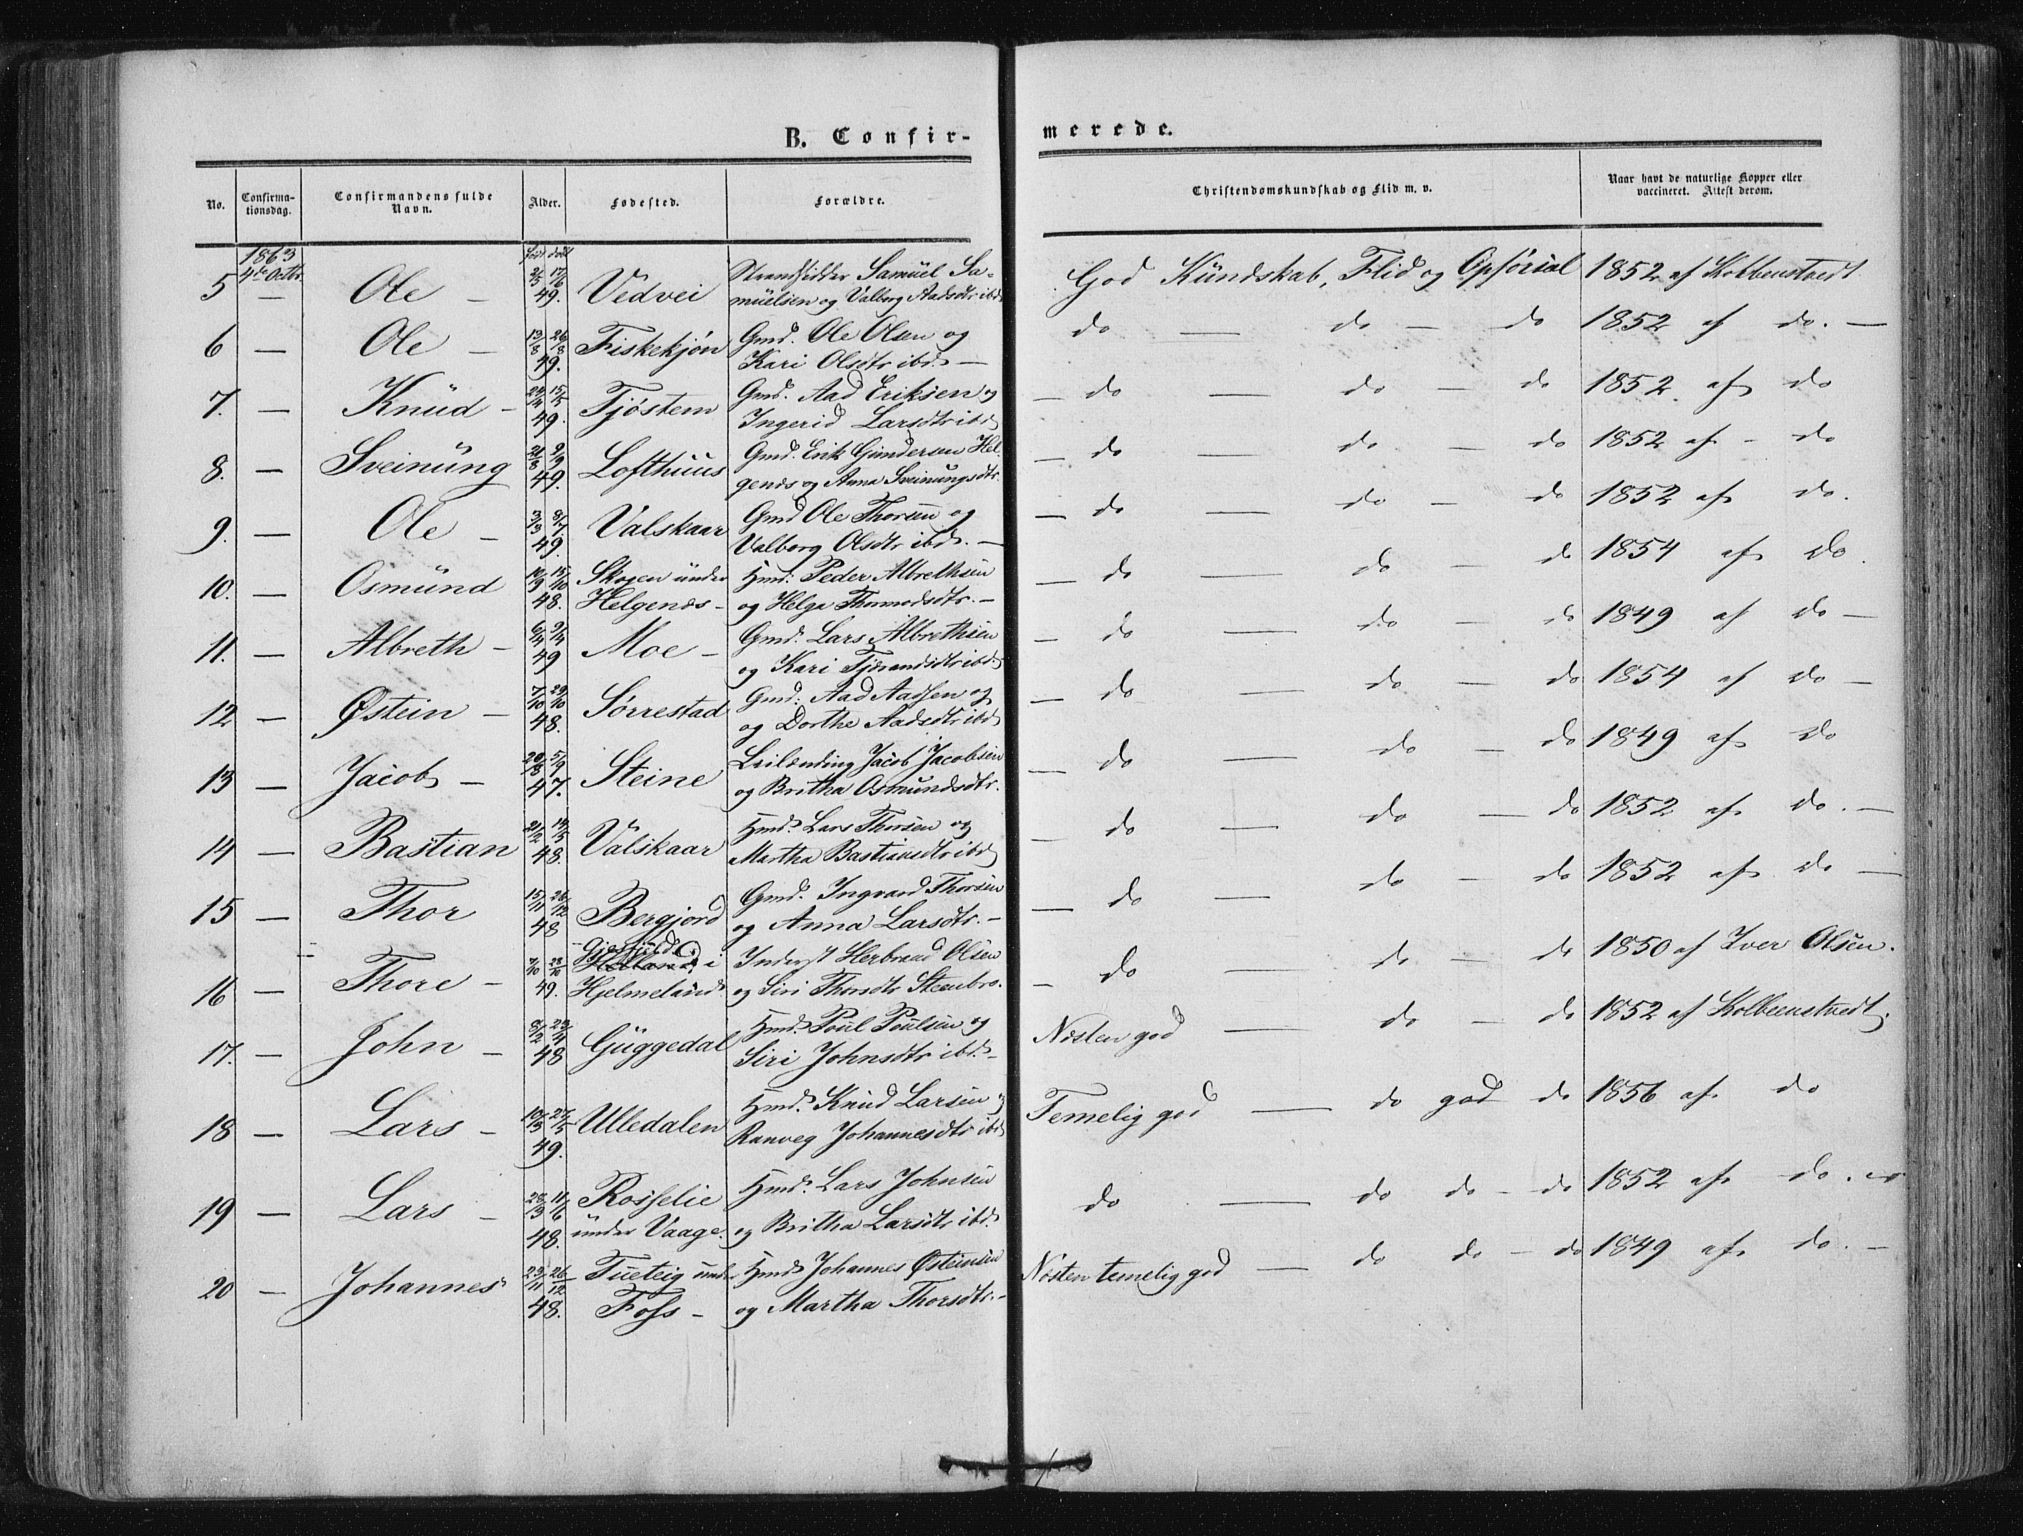 B. Confir-
merede.
No.
Confirma-
tionsdag.
Confirmandens fulde
Navn.
Alder.
Fødested.
Forældre.
Christendomskundskab og Flid m. v.
Naar havt de naturlige Kopper eller
vaccineret. Attest derom.
1863
4de Octbr.
født døbt
5 — Ole — 49. Vedvei Strandsidder Samuel Sa-
muelsen og Valborg Aadsdtr ibd.
God Kundskab, Flid og Opførsel 1852 af Kolbenstvedt
6 — Ole — 13/8 26/8 49. Fiskekjøn Gmd. Ole Olsen og
Kari Olsdtr ibd. —
do — do — do 1852 af do. —
7. — Knud — 15/5 49. Tjøstem Gmd. Aad Eriksen og
Ingerid Larsdtr ibd
— do — do — do 1852 af do
8. — Sveinung 21/8 9/9 49. Lofthuus Gmd. Erik Gundersen Hel-
genæs og Anna Sveinungsdtr.
— do — do — do 1852 af - do
9. — Ole — 3/3 8/7 49. Valskaar Gmd Ole Thorsen og
Valborg Olsdtr ibd. —
— do — do — do 1852 af do.
10. — Osmund 10/9 15/10 48. Skogen under
Helgenæs - Hmd: Peder Albrethsen
og Helga Thormodsdtr. —
— do — do — do 1854 af do.
11. — Albreth — 49 Moe — Gmd. Lars Albrethsen
og Kari Tjerandsdtr ibd
— do — do — do 1849 af do —
12 — Østein — 7/10 29/10 48. Sørrestad Gmd: Aad Aadsen og
og Dorthe Aadsdtr ibd
— do — do — do 1854 af do —
13 — Jacob — 20/8 5/9 47. Steine Leilænding Jacob Jacobsen
og Britha Osmundsdtr.
— do — do — do 1849 af do
14 — Bastian 21/2 14/5 48. Valskaar Hmd. Lars Thorsen og
Martha Bastiansdtr ibd
— do — do — do 1852 af do. —
15 — Thor 15/11 26/12 48 Bergjord Gmd. Ingvard Thorsen
og Anna Larsdtr. —
— do — do — do 1852 af do —
16 — Thore — 7/10 28/10 49. i
Hjelmeland Inderst Herbrand Olsen
og Siri Thorsdtr Steenbro.
— do — do — do 1850 af Iver Olsen.
17. — John — 8/2 48 Guggedal Hmd. Poul Poulsen og
Siri Johnsdtr ibd. —
Næsten god — do — do 1852 af Kolbeenstvedt.
18 — Lars — 49. Ulledalen Hmd. Knud Larsen og
Ranveg Johannesdtr ibd
Temelig god — do god do 1856 af do
19 — Lars — 28/3 11/6 48. Rosselie
under Vaage. Hmd. Lars Johnsen
og Britha Larsdtr ibd.
do — do do - do 1852 af do. —
20 — Johannes 23/11 26/12 48. Tueteig under
Foss - Hmd. Johannes Østeinsen
og Martha Thorsdtr. -
Næsten temelig god — do do - do 1849 af do. —